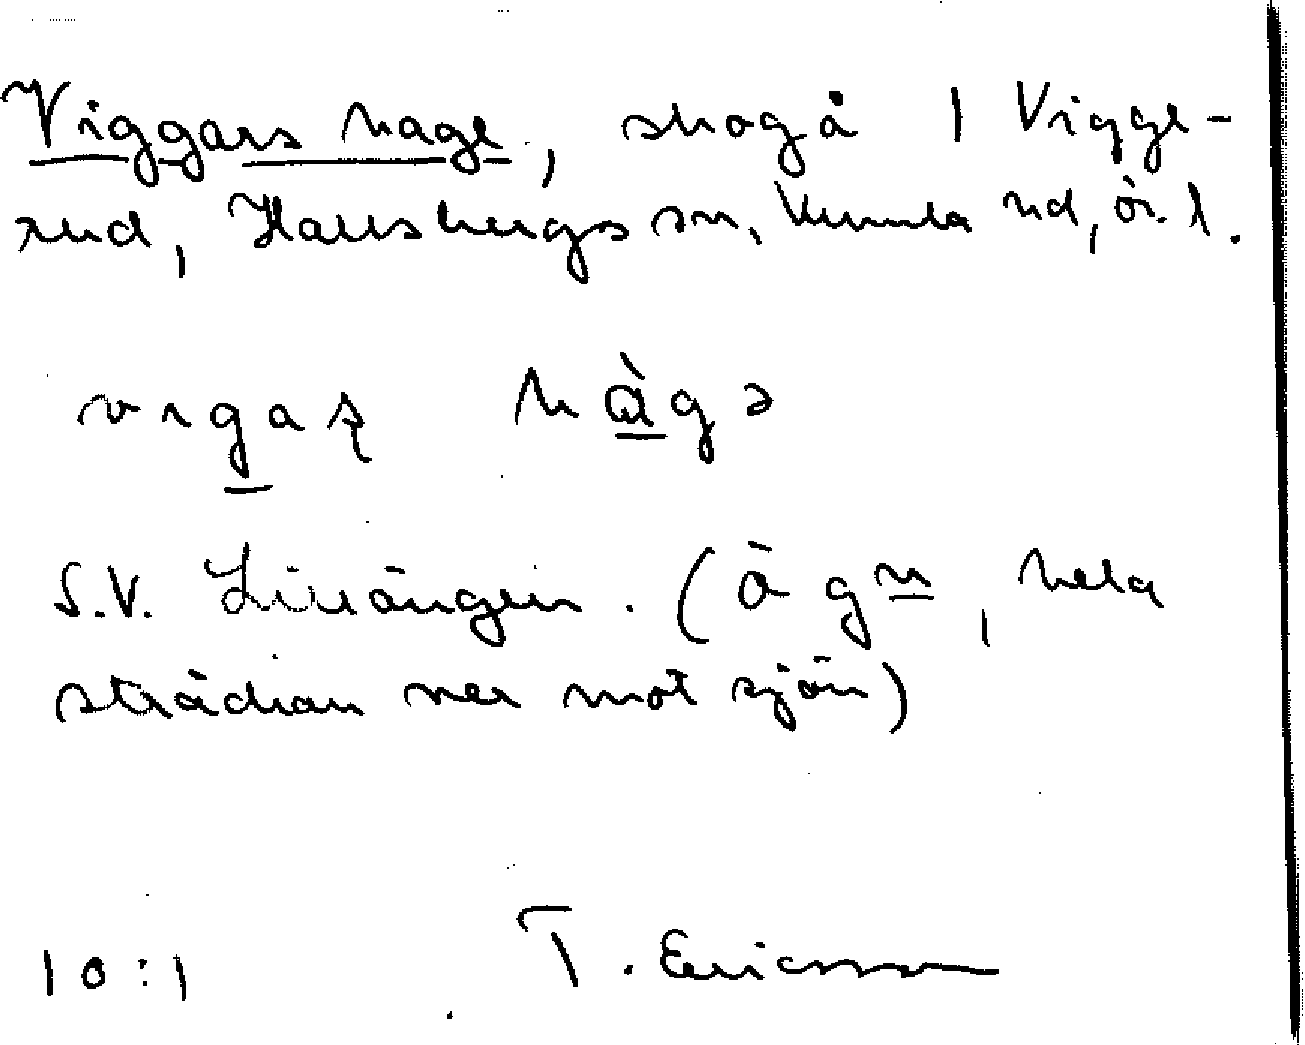 Viggars hage, skogå i Vigge-
rud, Hallsbergs sn, Kumla hd, ör. l.
vigaʂ hàgə
S.V. Lillängen. (ägn, hela
sträckan ner mot sjön)
10:1 T. Ericsson